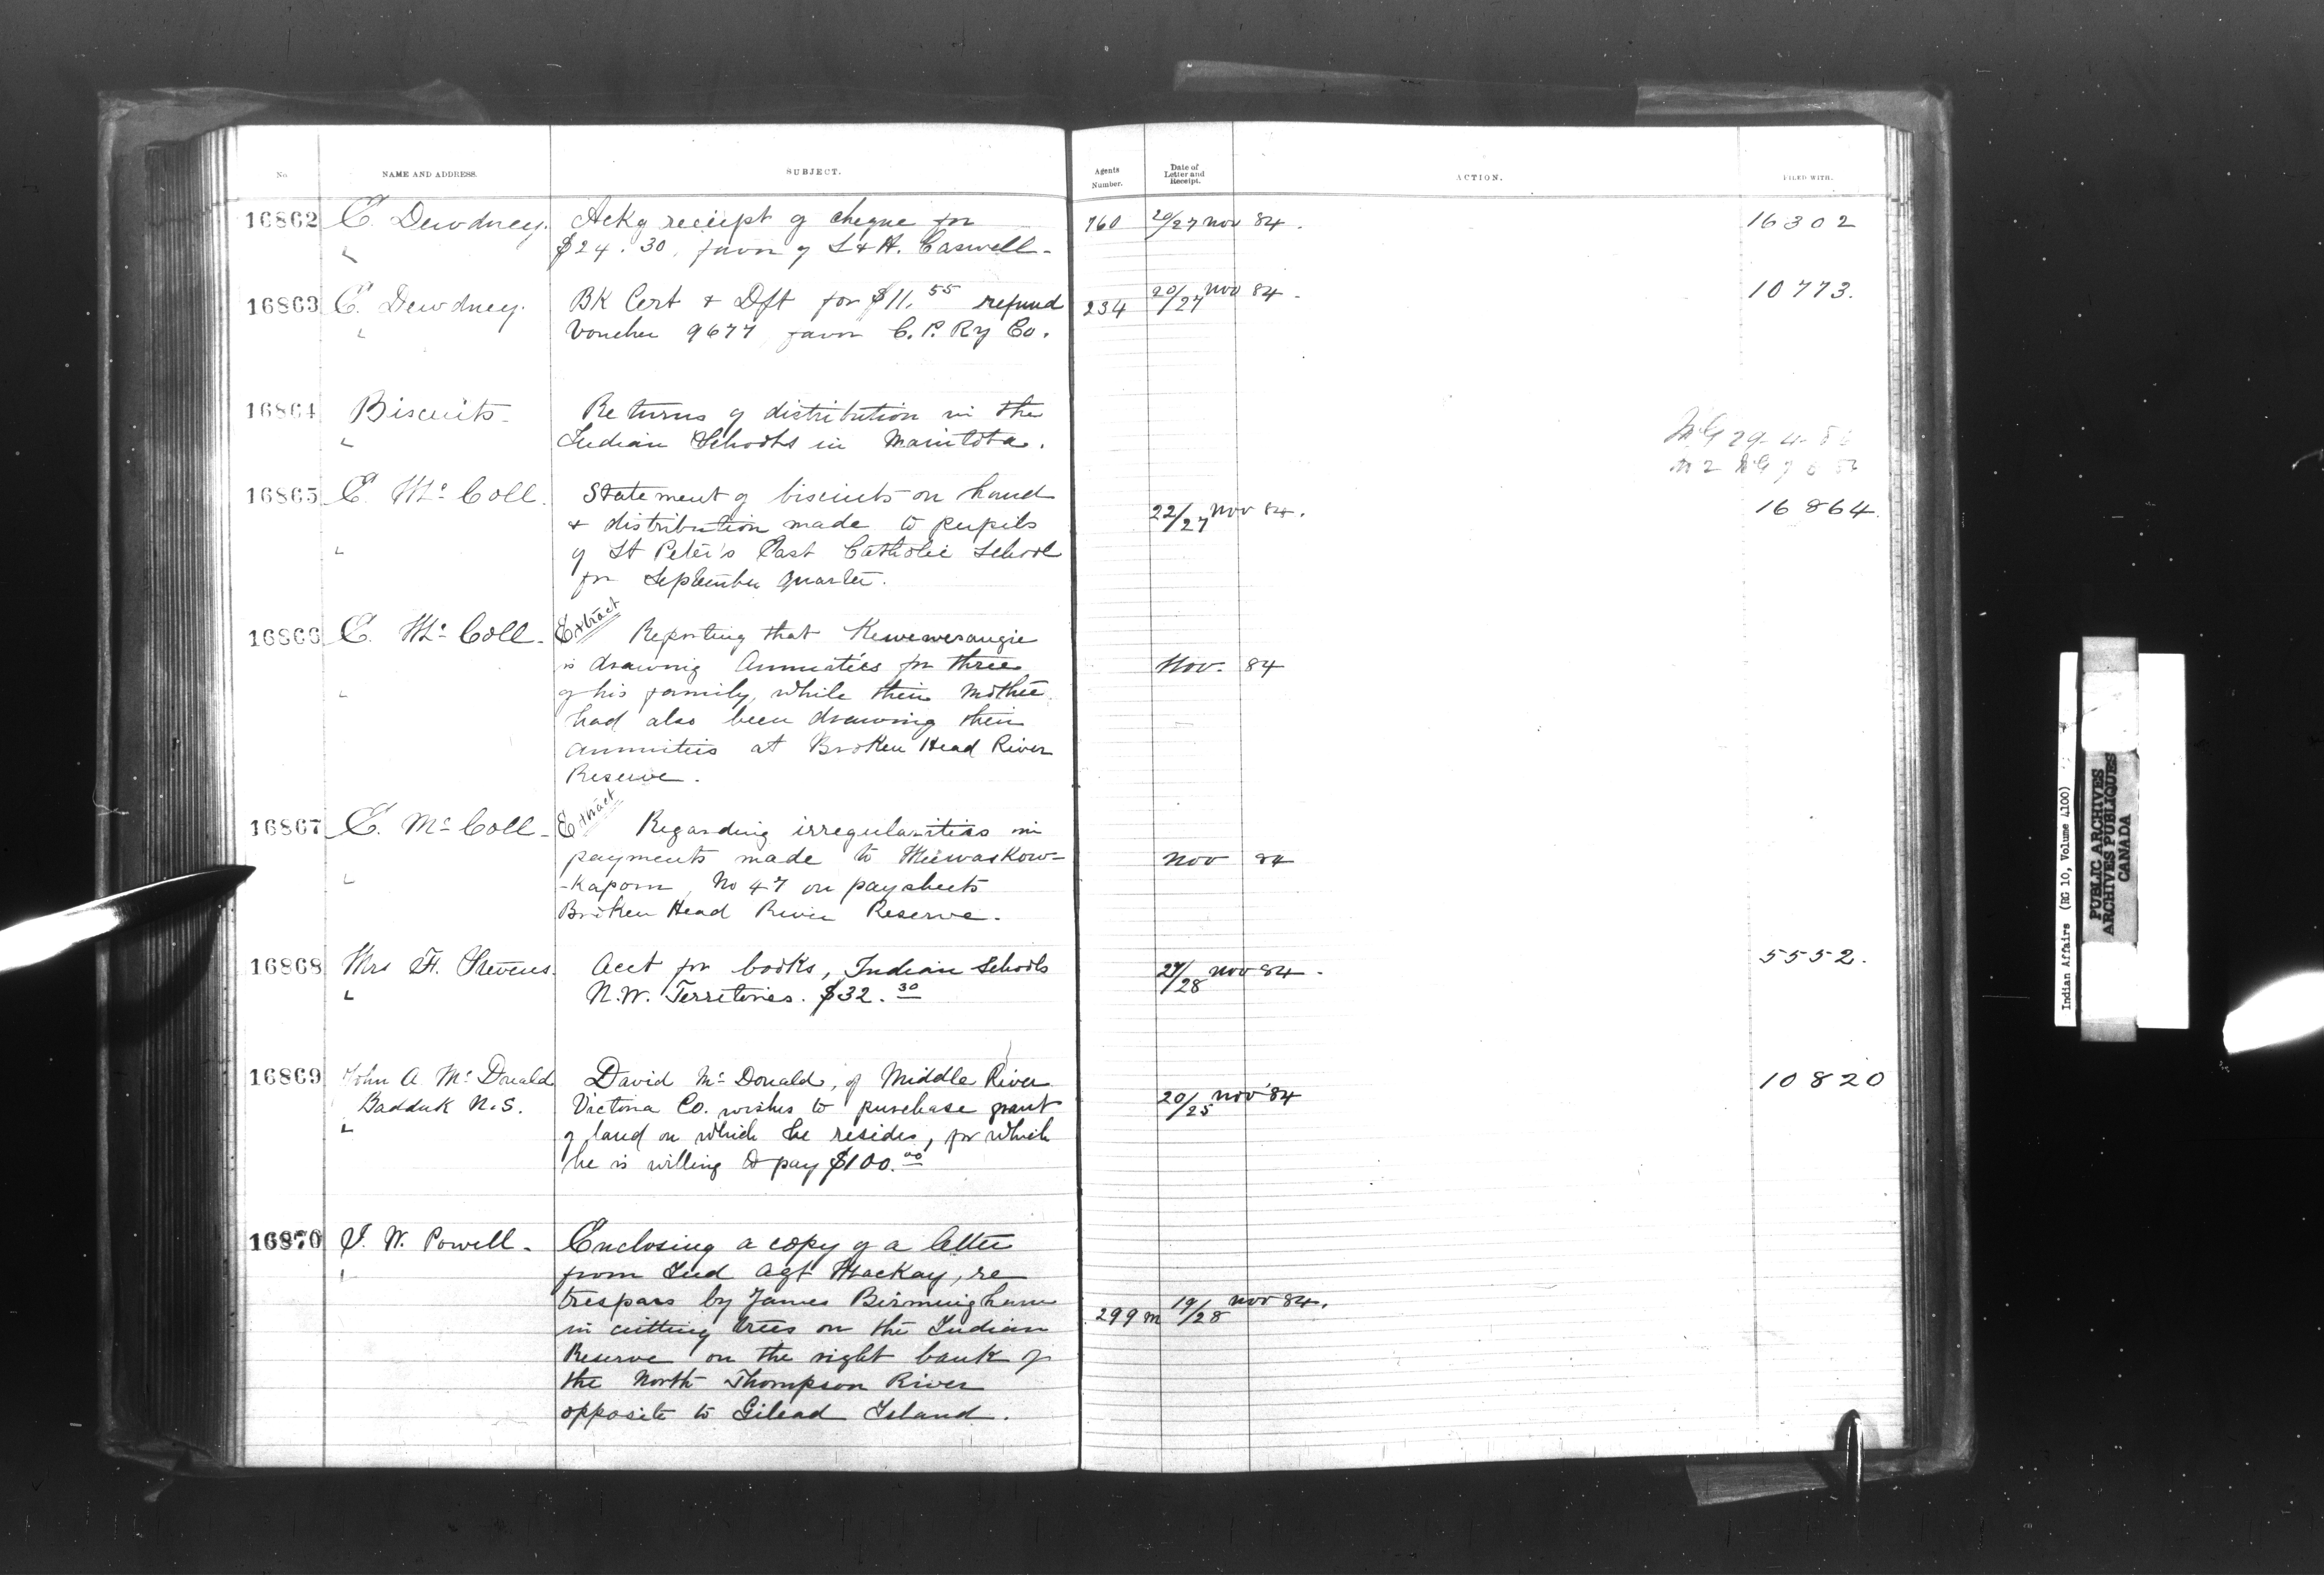 No. NAME AND ADDRESS. SUBJECT. Agents Number. Date of Letter and Receipt. ACTION. FILED WITH.
16862 E. Dewdney. Ackg receipt of cheque for 760 20/27 Nov 84. 16302
$24.30, favor of L & H. Caswell.
16863 E. Dewdney. BK Cert & Dft for $11.55 refund 234 20/27 Nov 84. 10773.
Voucher 9677 favor C. P. Ry Co.
16864 Biscuits. Returns of distribution in the
Indian Schools in Manitoba.
16865 E. McColl. Statement of biscuits on hand 22/27 Nov 84. 16864.
& distribution made to pupils
of St Peter's East Catholic School
for September quarter.
16866 E. McColl. Extract Reporting that Kewewesaugie
is drawing Annuities for three Nov. 84
of his family, while their mother
had also been drawing their
annuities at Broken Head River
Reserve.
16867 E. McColl. Extract Regarding irregularities in
payments made to Meewaskow- Nov 84
-kapom, No 47 on paysheets
Broken Head River Reserve.
16868 Mrs F. Stevens. Acct for books, Indian Schools 27/28 Nov 84. 5552.
N.W. Territories. $32.30
16869 John A. McDonald David McDonald, of Middle River 10820
Badduk N.S. Victoria Co. wishes to purchase grant 20/25 Nov '84
of land on which he resides, for which
he is willing to pay $100.00
16870 I. W. Powell. Enclosing a copy of a letter
from Ind Agt Mackay, re
trespass by James Birmingham 299 m 19/28 Nov 84.
in cutting trees on the Indian
Reserve on the right bank of
the North Thompson River
opposite to Gilead Island.
Indian Affairs (RG 10, Volume 4100)
PUBLIC ARCHIVES
ARCHIVES PUBLIQUES
CANADA